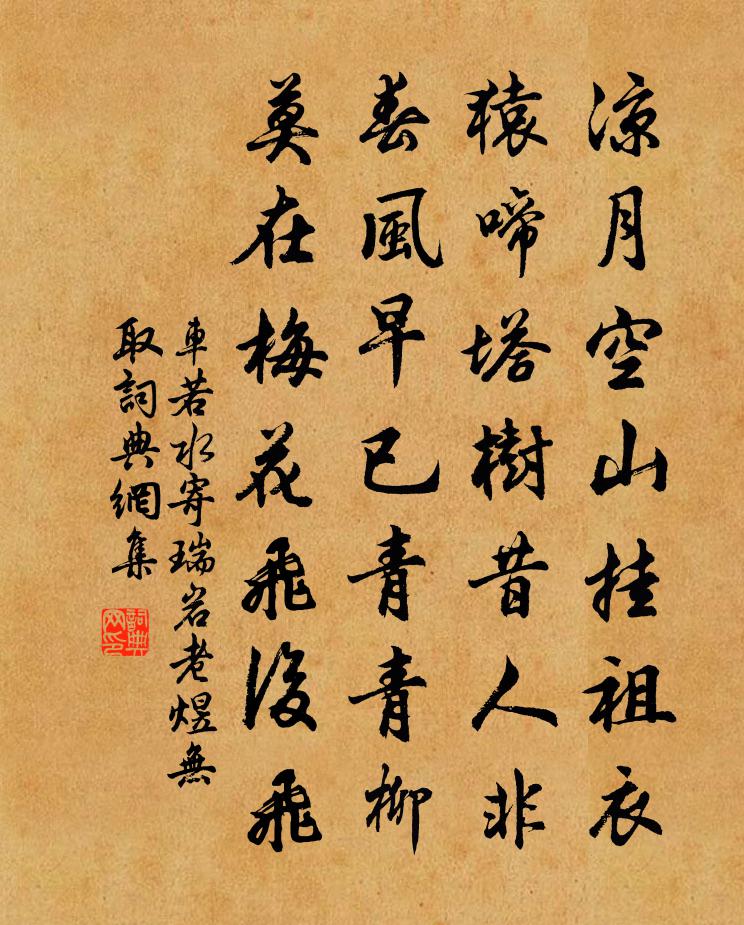 凉月空山挂祖衣
猿啼塔樹昔人非
春風早已青青柳
莫在梅花飛後飛
車若水寄瑞岩老煜無
取詞典網集
詞典
网印